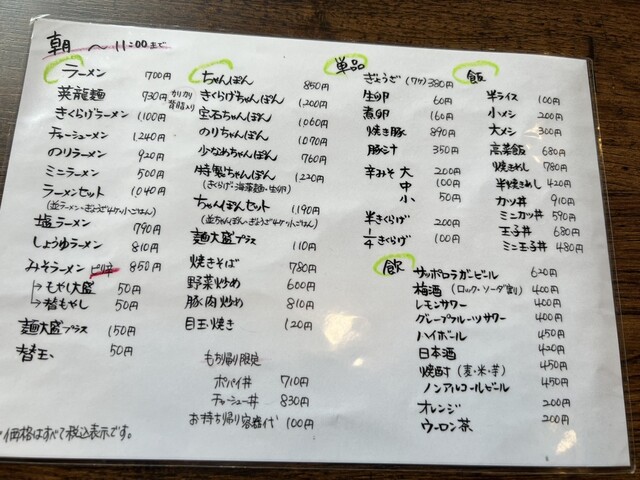 朝 〜11:00まで
ラーメン 700円
英龍麺 730円 カリカリ背脂入り
きくらげラーメン 1,100円
チャーシューメン 1,240円
のりラーメン 920円
ミニラーメン 500円
ラーメンセット 1,040円
(並ラーメン・ぎょうざ4ケ・小ごはん)
塩ラーメン 790円
しょうゆラーメン 810円
みそラーメン ピリ辛 850円
→もやし大盛 50円
→替もやし 50円
麺大盛プラス 150円
替玉 50円
ちゃんぽん 850円
きくらげちゃんぽん 1,200円
宝石ちゃんぽん 1,060円
のりちゃんぽん 1,070円
少なめちゃんぽん 760円
特製ちゃんぽん 1,220円
(きくらげ・海藻麺・生卵)
ちゃんぽんセット 1,190円
(並ちゃんぽん・ぎょうざ4ケ・小ごはん)
麺大盛プラス 110円
焼きそば 780円
野菜炒め 600円
豚肉炒め 810円
目玉焼き 120円
もち帰り限定
ポパイ丼 710円
チャーシュー丼 830円
お持ち帰り容器代 100円
単品
ぎょうざ(7ケ) 380円
生卵 60円
煮卵 160円
焼き豚 890円
豚汁 350円
辛みそ 大 200円
中 100円
小 50円
半きくらげ 200円
1/4きくらげ 100円
飯
半ライス 100円
小メシ 200円
大メシ 300円
高菜飯 680円
焼きめし 780円
半焼きめし 420円
カツ丼 910円
ミニカツ丼 590円
玉子丼 680円
ミニ玉子丼 480円
飲
サッポロラガービール 620円
梅酒(ロック・ソーダ割) 400円
レモンサワー 400円
グレープフルーツサワー 400円
ハイボール 450円
日本酒 420円
焼酎(麦・米・芋) 450円
ノンアルコールビール 450円
オレンジ 200円
ウーロン茶 200円
価格はすべて税込表示です。